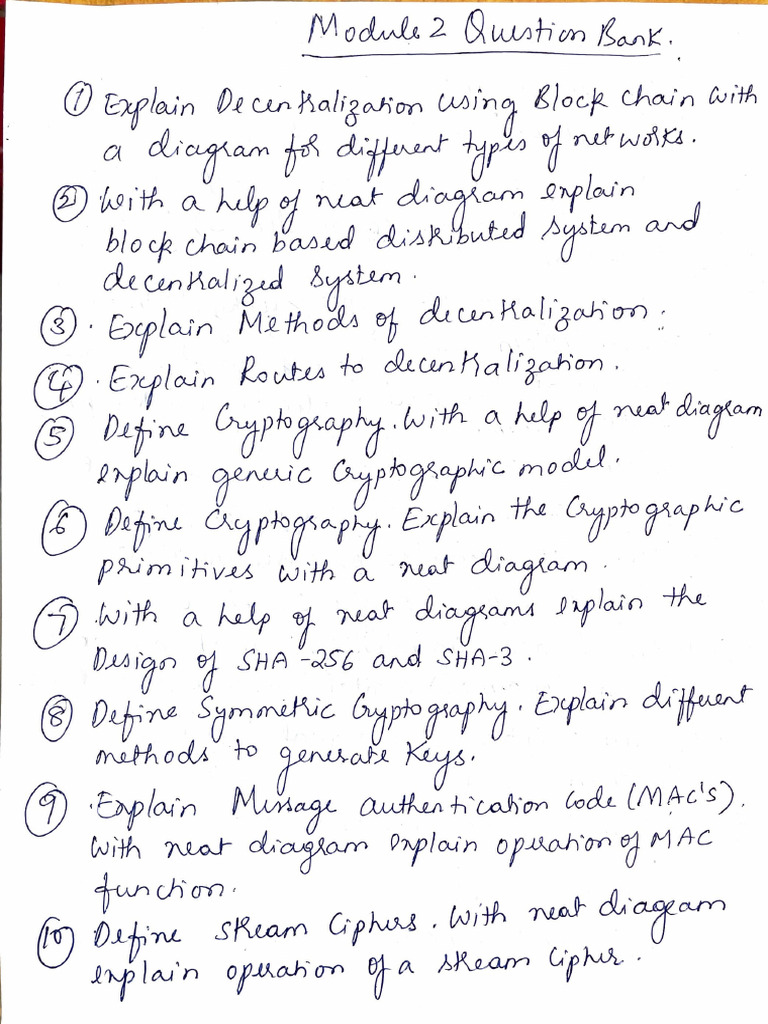 Module 2 Question Bank.
① Explain Decentralization using Block chain with
a diagram for different types of networks.
② With a help of neat diagram explain
block chain based distributed system and
decentralized system.
③ . Explain Methods of decentralization.
④ . Explain Routes to decentralization.
⑤ Define Cryptography. With a help of neat diagram
explain generic Cryptographic model.
⑥ Define Cryptography. Explain the Cryptographic
primitives with a neat diagram.
⑦ With a help of neat diagrams explain the
Design of SHA-256 and SHA-3.
⑧ Define Symmetric Cryptography. Explain different
methods to generate Keys.
⑨ . Explain Message authentication code (MAC's).
With neat diagram explain operation of MAC
function.
⑩ Define Stream Ciphers. With neat diagram
explain operation of a stream Cipher.